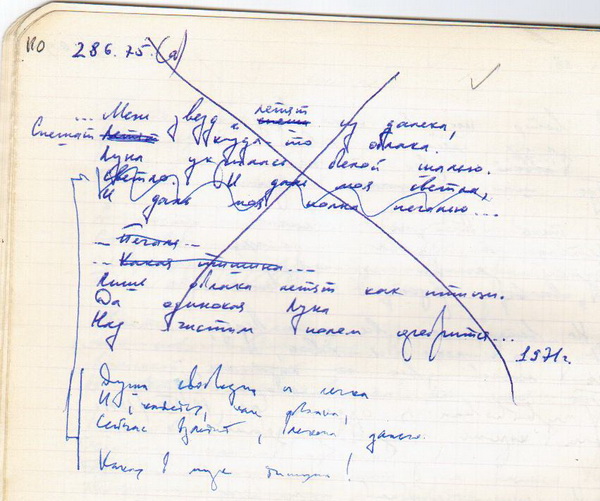 110
28 6. 75. (а)
... Меж звезд летят спеша из далека,
Спешат Летят куда-то облака.
Луна укрылась белой шалью.
Светло. И даль моя светла,
И даль моя полна печалью...
... Печаль...
... Какая тишина...
Лишь облака летят как птицы.
Да одинокая луна
Над чистым полем серебрится...
1971 г.
Душа свободна и легка
И, кажется, что
Сейчас взлетит,
Какая в мире тишина!